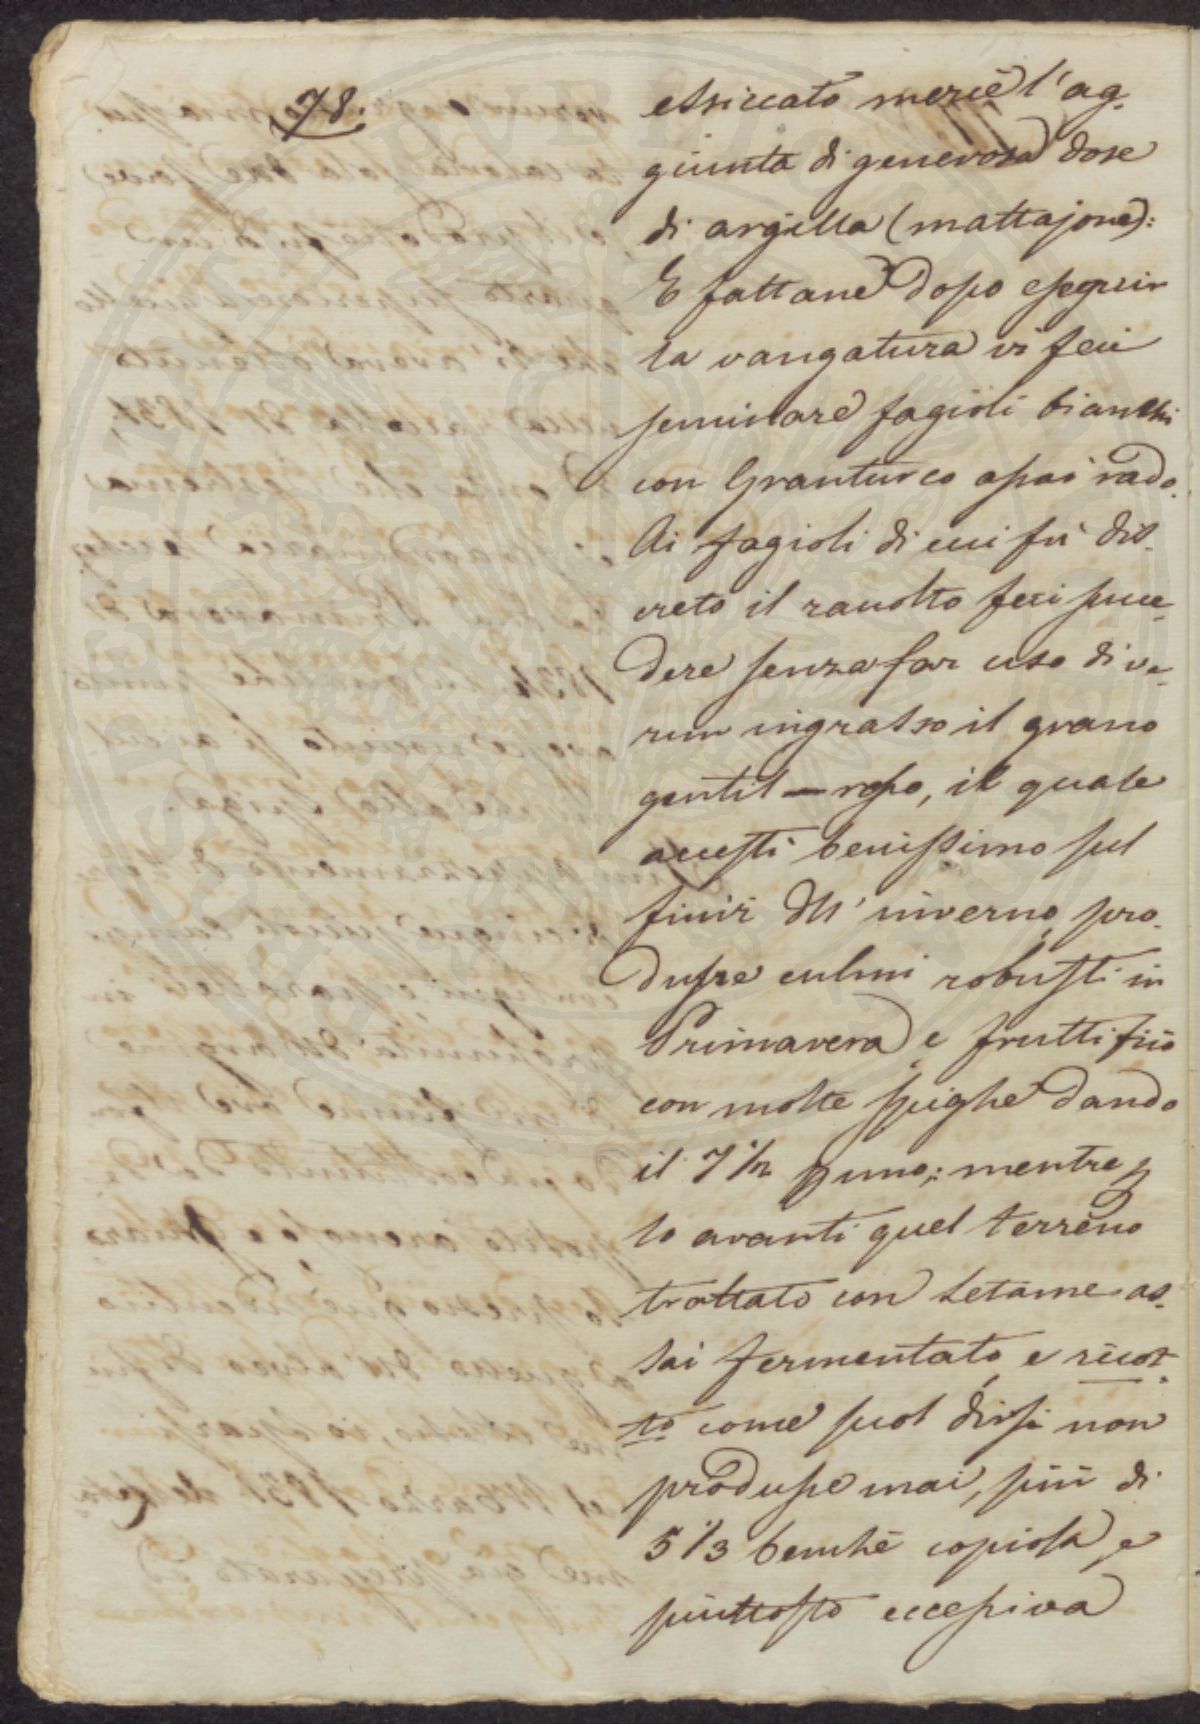 78.
essiccato mercè l'ag-
giunta di generosa dose
di argilla (mattajone):
E fattane dopo eseguir
la vangatura vi feci
seminare fagioli bianchi
con Granturco assai rado.
Ai fagioli di cui fù dis-
creto il racolto feci succe-
dere senza far uso di ve-
run ingrasso il grano
gentil-rosso, il quale
accestì benissimo sul
finir dell'inverno, pro-
dusse culmi robusti in
Primavera e fruttificò
con molte spighe dando
il 7 1/2 p uno; mentre p
lo avanti quel terreno
trattato con Letame as-
sai fermentato, e ricot-
to come suol dirsi non
produsse mai, più di
5 1/3 benchè copiosa, e
piuttosto eccessiva